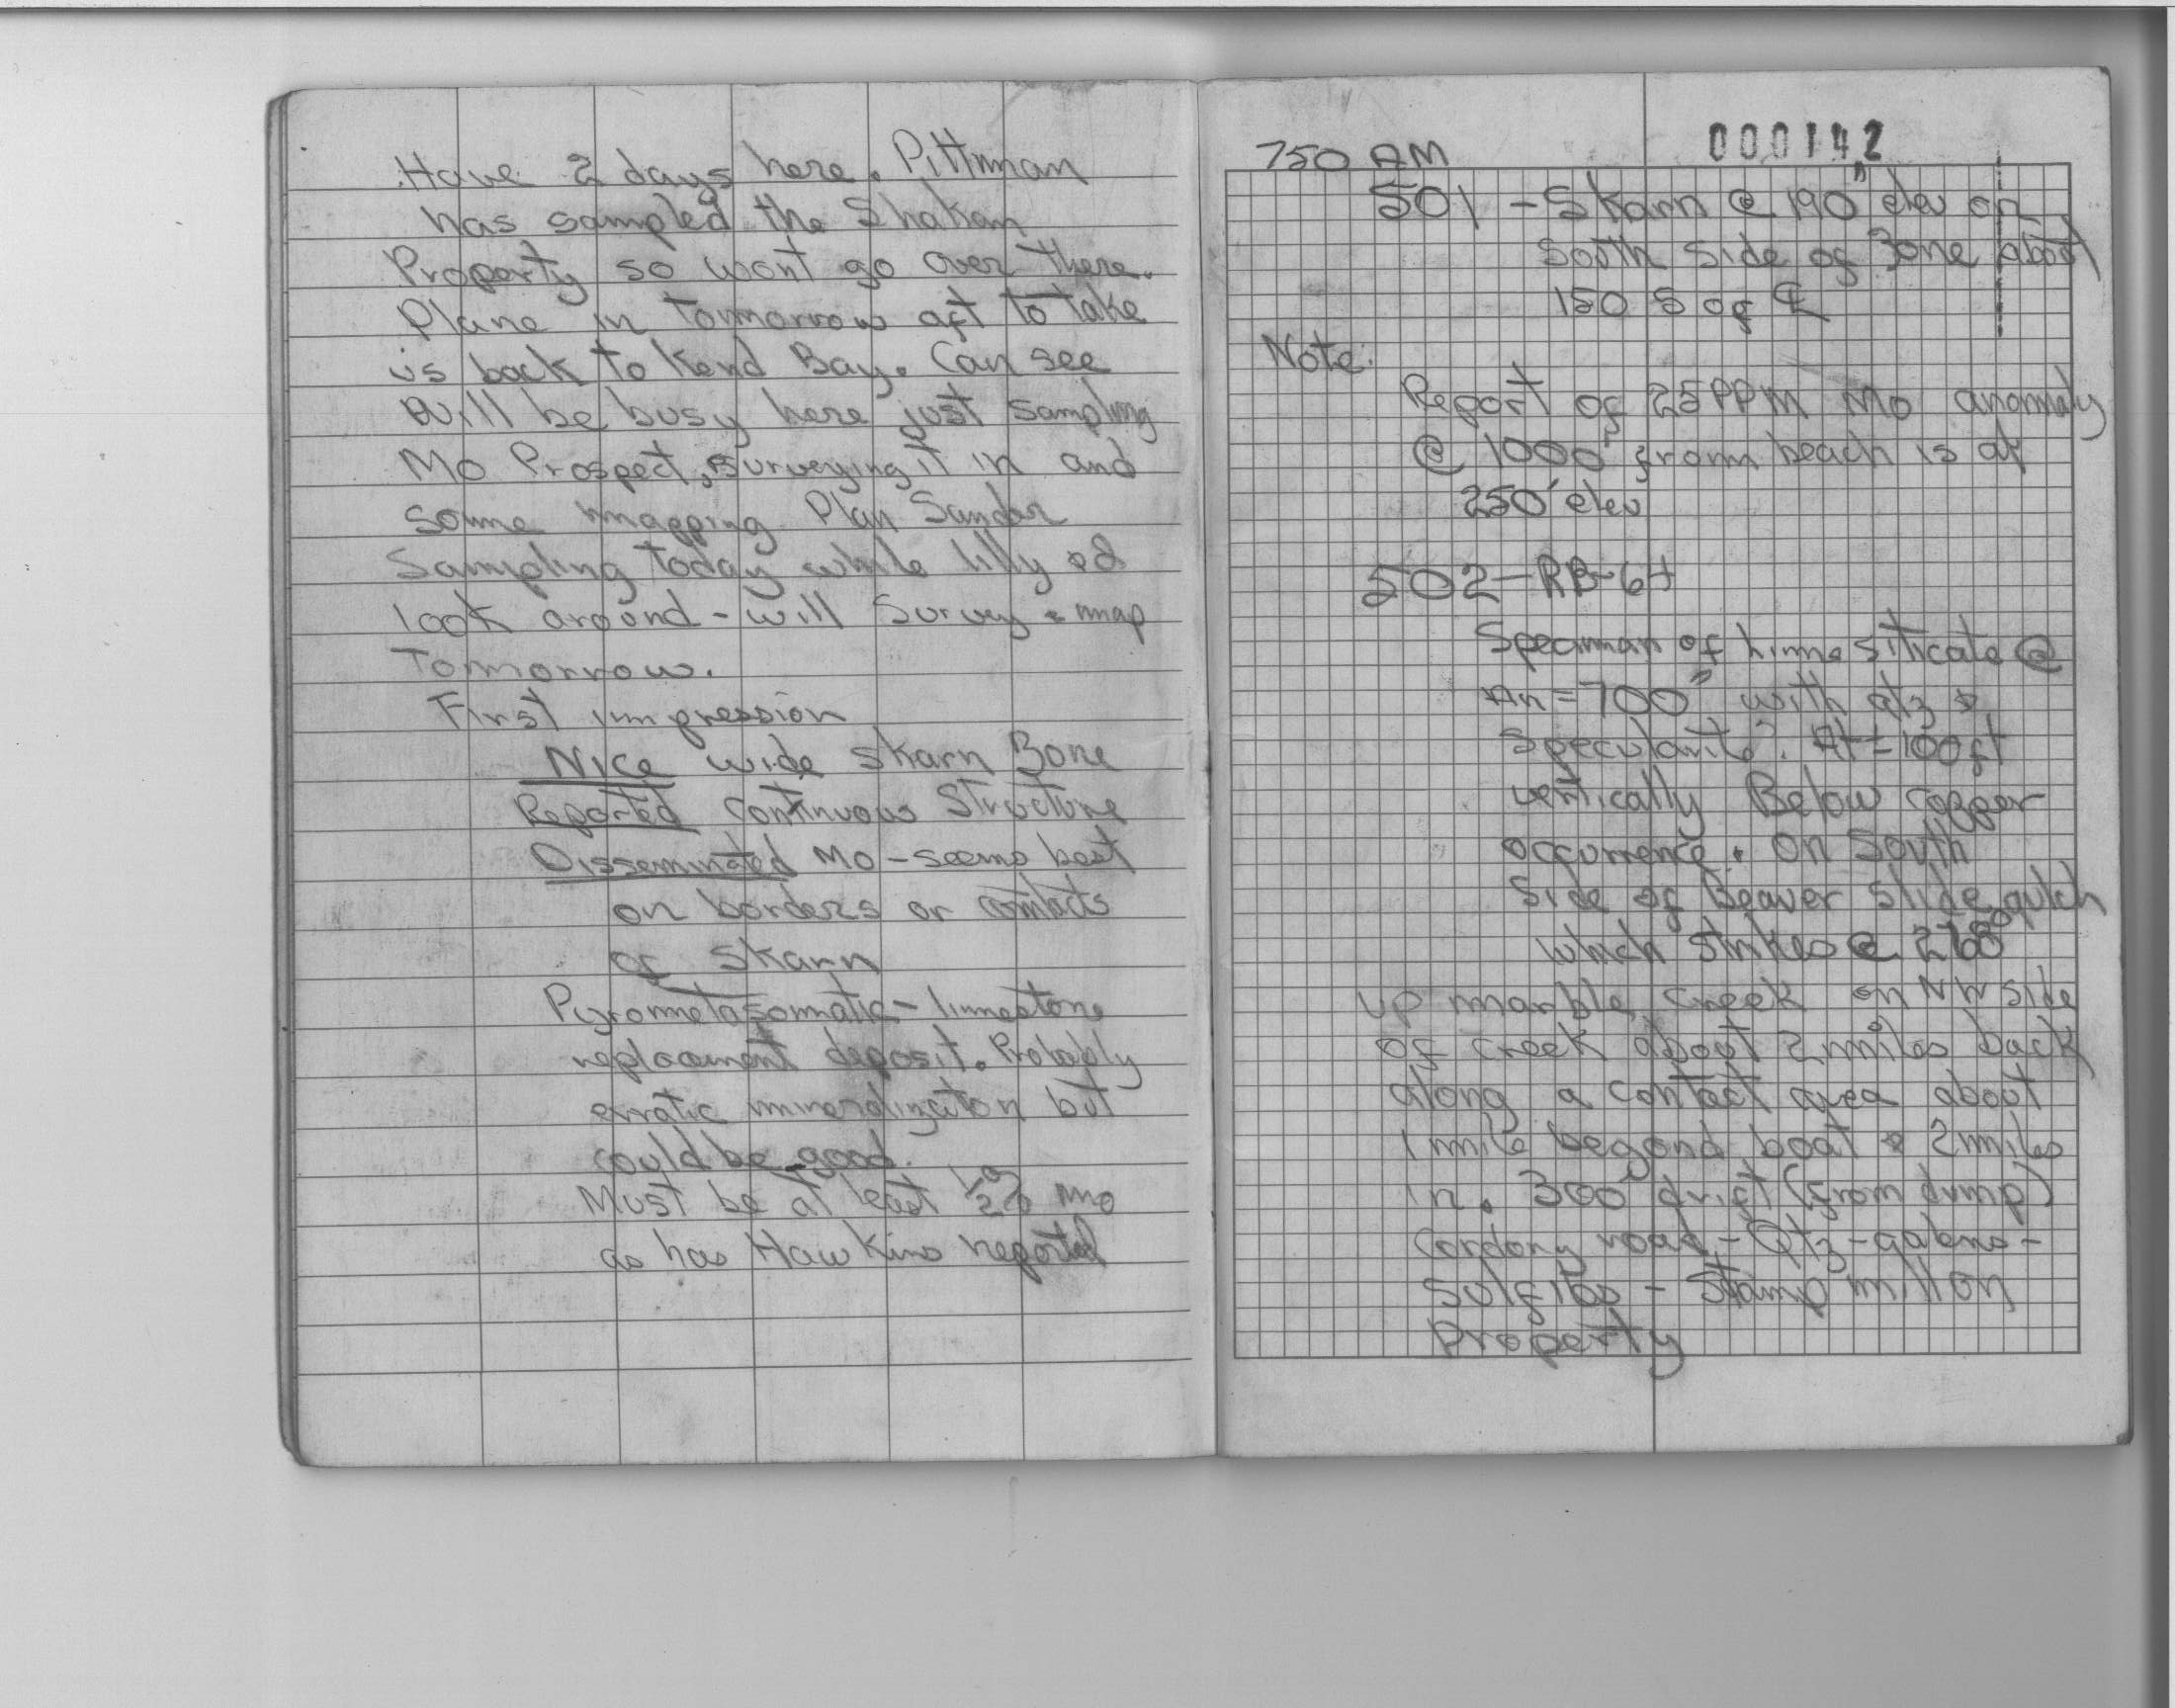 Have 2 days here. Pittman
has sampled the Shakan
Property so wont go over there.
Plane in Tomorrow aft to take
us back to Kend Bay. Can see
will be busy here just sampling
Mo Prospect, surveying it in and
some mapping. Plan Sandor
Sampling today while lilly &
look around - will Survey & map
Tomorrow.
First impression
Nice wide skarn Zone
Reported continuous Structure
Disseminated Mo - seems best
on borders or contacts
of Skarn
Pyrometasomatic - limestone
replacement deposit. Probably
erratic mineralization but
could be good.
Must be at least 1/2% Mo
as has Hawkins reported
750 AM
000142
501 - Skarn @ 190" elev on
South side of Zone about
150 S of ℄
Note:
Report of 25 PPM Mo anomaly
@ 1000' from beach is at
250' elev
502 - RB-64
Speciman of lime silicate @
An = 700" with qtz &
Specularite?. At ± 100 ft
vertically Below copper
occurrence. on South
Side of Beaver Slide gulch
which strikes @ 268°
up marble creek on NW side
of creek about 2 miles back
along a contact area about
1 mile beyond boat & 2 miles
in. 300' drift (from dump)
Cordory road - Qtz - galena -
sulfides - Stamp mill on
Property